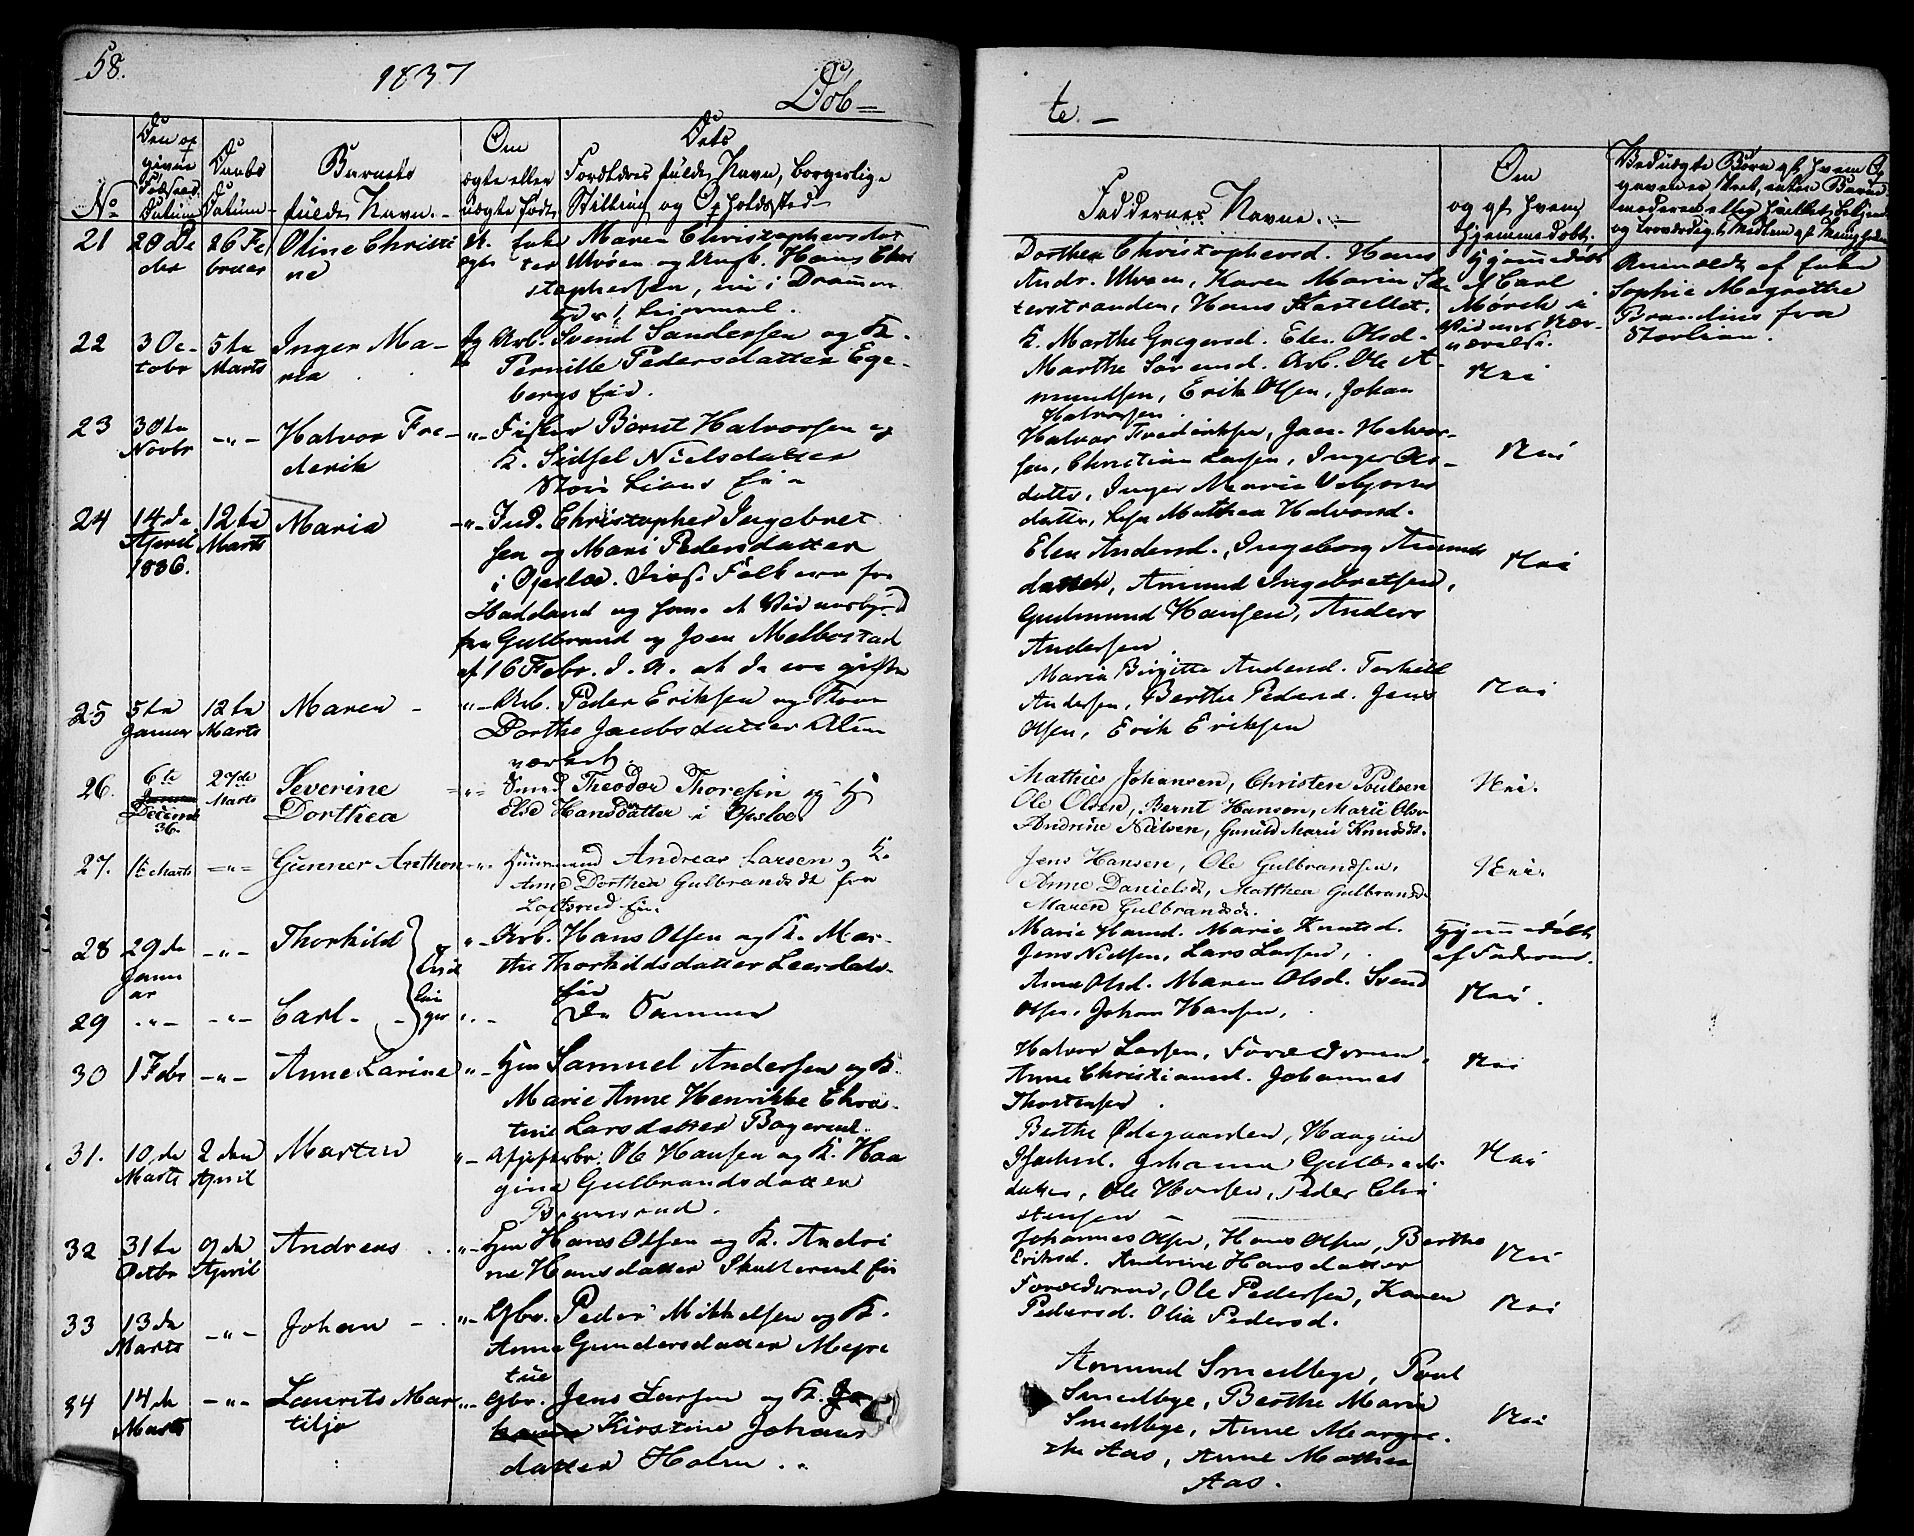 58.
1837
Døb-
te. -
No
Den op
givne
Fødsels
Datum
Daabs
Datum
Barnets
fulde Navn. -
Om
ægte eller
uægte født
Dets
Forældres fulde Navn, borgerlige
Stilling og Opholdssted
Faddernes Navne. -
Om
og af hvem
hjemmedøbt
21
20 De
26 Fe
bruar
Oline Christi
ne
Maren Christophersdat
ter Ulvøen og Ungk. Hans Chri
stophersen, nu i Drammen
Dorthea Christophersd. Hans
Andr. Ulvøen, Karen Maria
terstranden, Hans Kastellet.
Hjemmedøbt
af Carl
Mørch i
Anmældt af
Sophie Magrethe
fra
22
3 Oc
tobr
5te
Marts
Inger Ma-
ria
Arb. Svend Sandersen og K.
Pernille Pedersdatter Ege-
bergs Eie.
K. Marthe Gregersd. Elen Olsd.
Marthe Sørensd. Arb. Ole A-
mundsen, Erik Olsen, Johan
Halvorsen
Nei
23
30te
Novbr
-"-
Halvor Fre-
derik
-"- Fisker Bernt Halvorsen og
K. Sidsel Nielsdatter
Halvor Frederiksen, Jac. Halvor-
sen, Christian Larsen, Inger
datter, Inger Maria
datter, Mathea Halvorsd.
Nei
24
14de
April
1836.
12te
Marts
Maria
-"- Ind. Christopher Ingebret
sen og Mari Pedersdatter
i Opslo. Disse Folk ere fra
Hadeland og have et
fra Gulbrand og Joen Melbostad
af 16 Febr. d. A. at de ere gifte
Elen Andersd., Ingeborg Amunds
datter, Amund Ingebretsen,
Gudmund Hansen, Anders
Andersen
Nei
25
5te
Januar
12te
Marts
Maren -
"- Arb. Peder Eriksen og Kone
Dorthe Jacobsdatter Alun
værket.
Maria Birgitte Andersd. Torkild
Andersen, Berthe Pedersd. Jens
Olsen, Erik Eriksen
Nei
26.
6te
Decembr
36.
27de
Marts
Severine
Dorthea
-"- Smed Theodor Thoresen og H
Else Hansdatter i Opsloe
Mathies Johansen, Christen Poulsen
Ole Olsen, Bernt Hansen, Marie Olsd
Andrine Nielsen, Gunild Marie Knudsdt.
Nei.
27.
1te Marts
-"-
Gunner Anthon
-"- Huusmand Andreas Larsen og K.
Anne Dorthea Gulbrandsdt fra
Loftsrud Eie.
Jens Hansen, Ole Gulbrandsen,
Anne Danielsd, Matthea Gulbrandsd.
Maren Gulbrandsd.
Nei.
28
29de
Janu
ar
-"-
Thorkild
"- Arb. Hans Olsen og K. Mar-
the Thorkildsdatter Leerdals-
Eie
Marie Hansd. Marie Knutsd.
Jens Nielsen, Lars Larsen,
Hjemmedøbt
af Faderen.
29
-"-
-"-
Carl -
"-
De Samme
Anne Olsd. Maren Olsd. Svend
Olsen, Johan Hansen,
Nei.
30
1 Febr
-"-
Anne Larine
"- Hm Samuel Andersen og K.
Marie Anne Henrikke Chris-
tine Larsdatter Bogerud.
Halvor Larsen, Forældrene,
Anne Christiansd. Johannes
Thorstensen
Nei
31.
10de
Marts
2den
April
Marten
"- Ole Hansen og K. Haa
gine Gulbrandsdatter
Berthe Ødegaarden, Haagine
Isachsd. Johanne Gulbrands-
datter, Ole Hansen, Peder Chri
stensen -
Nei
32
31te
Octbr
9de
April
Andreas
"- Hm Hans Olsen og K. Andri
ne Hansdatter Skullerud Eie
Johannes Olsen, Hans Olsen, Berthe
Eriksd. Andrine Hansdatter
Nei
33
13de
Marts
-"-
Johan -
"- Gbr. Peder Mikkelsen og K.
Anne Gundersdatter
Forældrene, Ole Pedersen, Karen
Pedersd. Olia Pedersd.
Nei
34
14de
Marts
-"-
Laurits Mar
tilje
"- Gbr. Jens Larsen og K. Jo
hanne Kirstine Johans
datter Holm.
Amund Smedbye, Poul
Smedbye, Berthe Marie
Smedbye, Anne Margre-
the Aas, Anne Mathea
Aas.
Nei